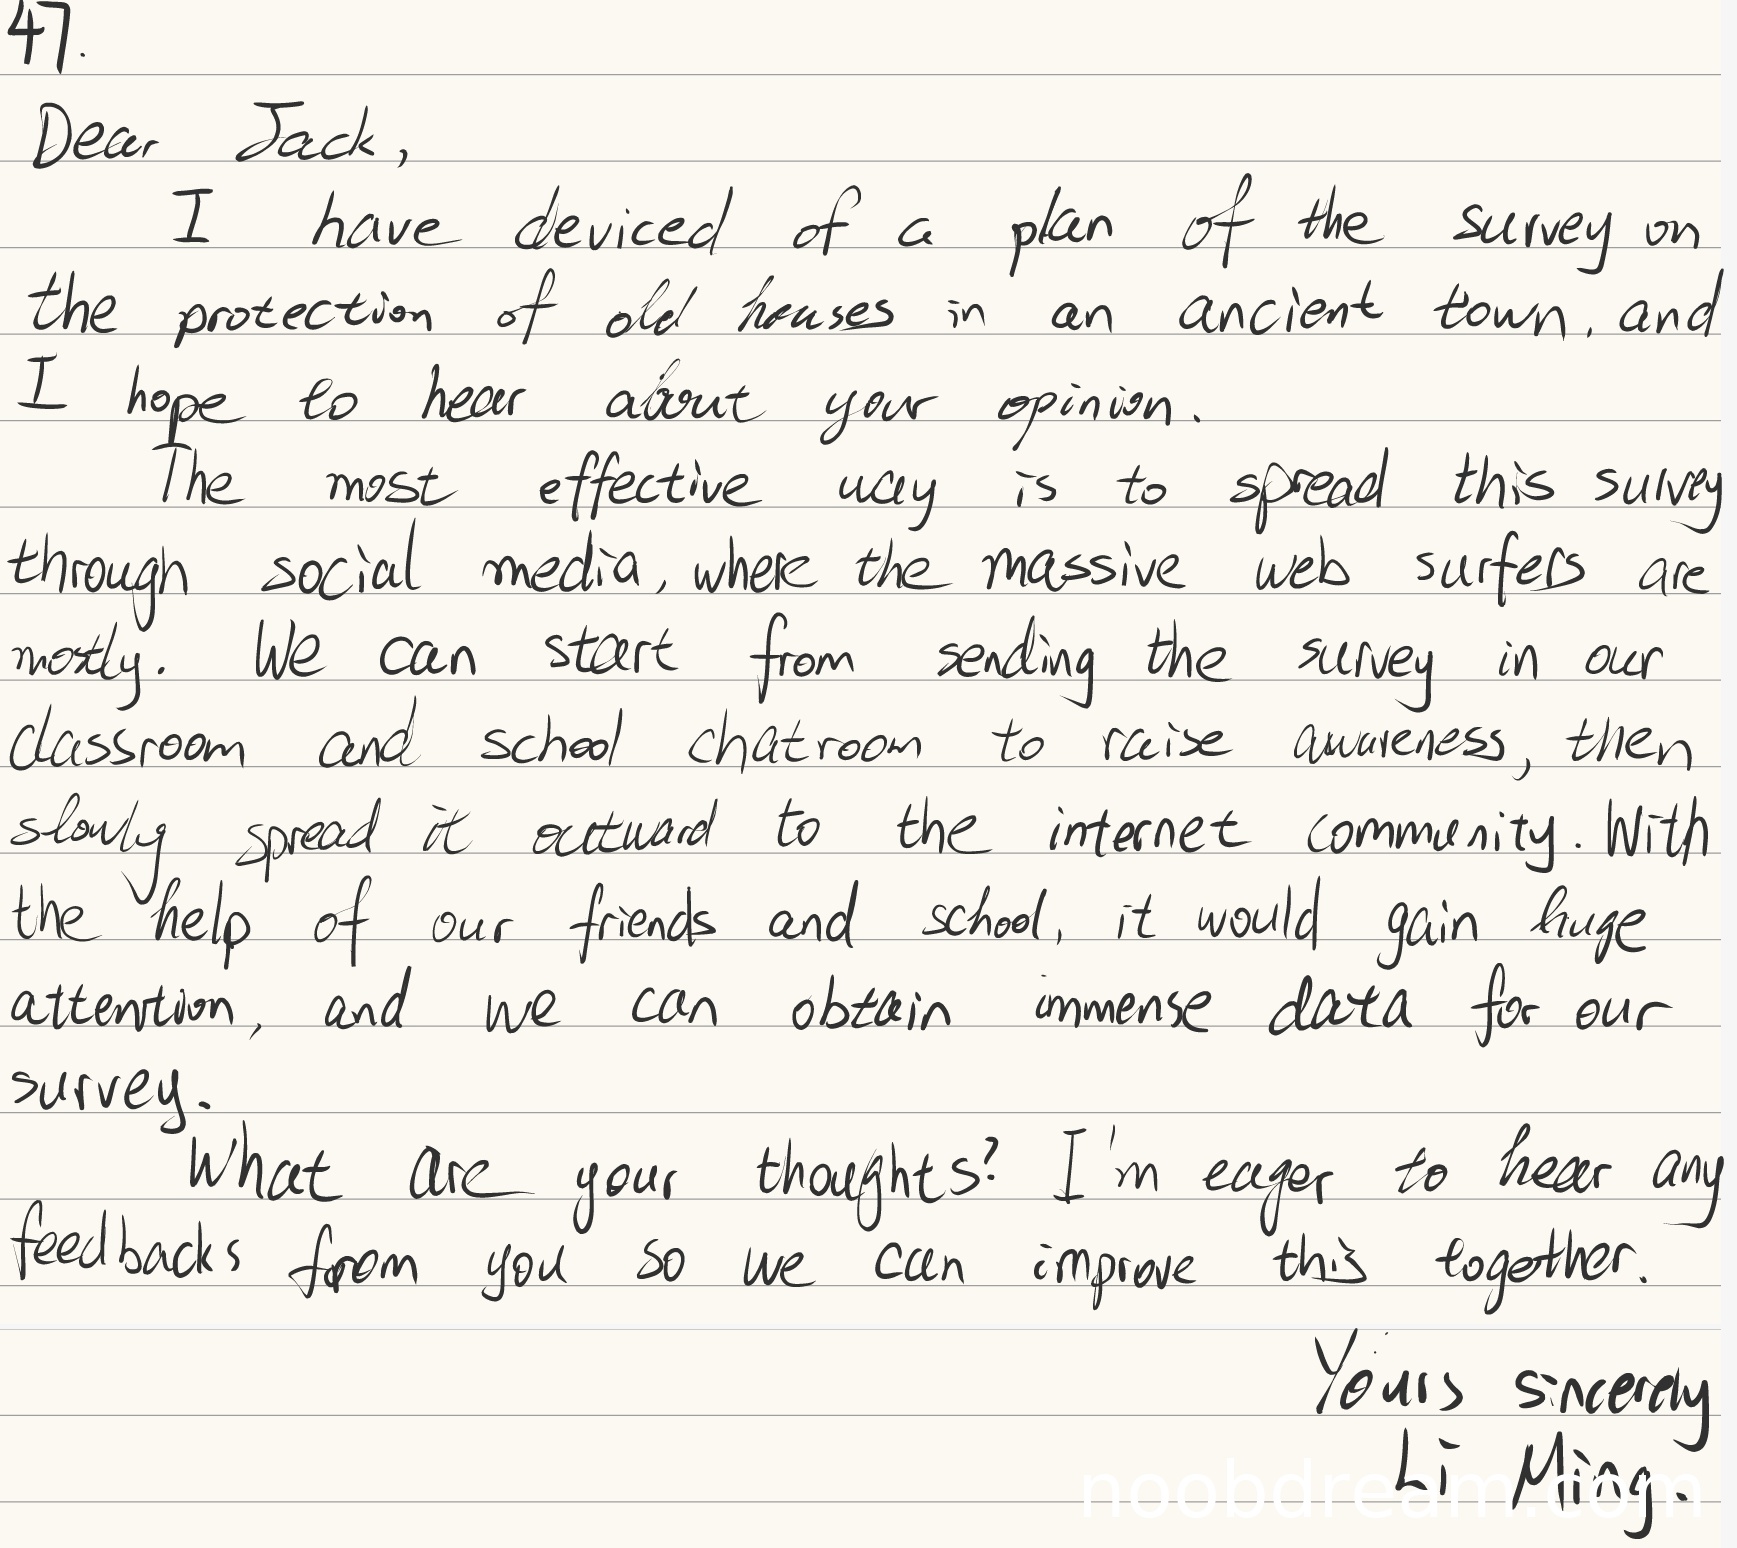 47.
Dear Jack,
I have deviced of a plan of the survey on
the protection of old houses in an ancient town, and
I hope to hear about your opinion.
The most effective way is to spread this survey
through social media, where the massive web surfers are
mostly. We can start from sending the survey in our
classroom and school chatroom to raise awareness, then
slowly spread it outward to the internet community. With
the help of our friends and school, it would gain huge
attention, and we can obtain immense data for our
survey.
What are your thoughts? I'm eager to hear any
feedbacks from you so we can improve this together.
Yours sincerely
Li Ming.
noobdream.com